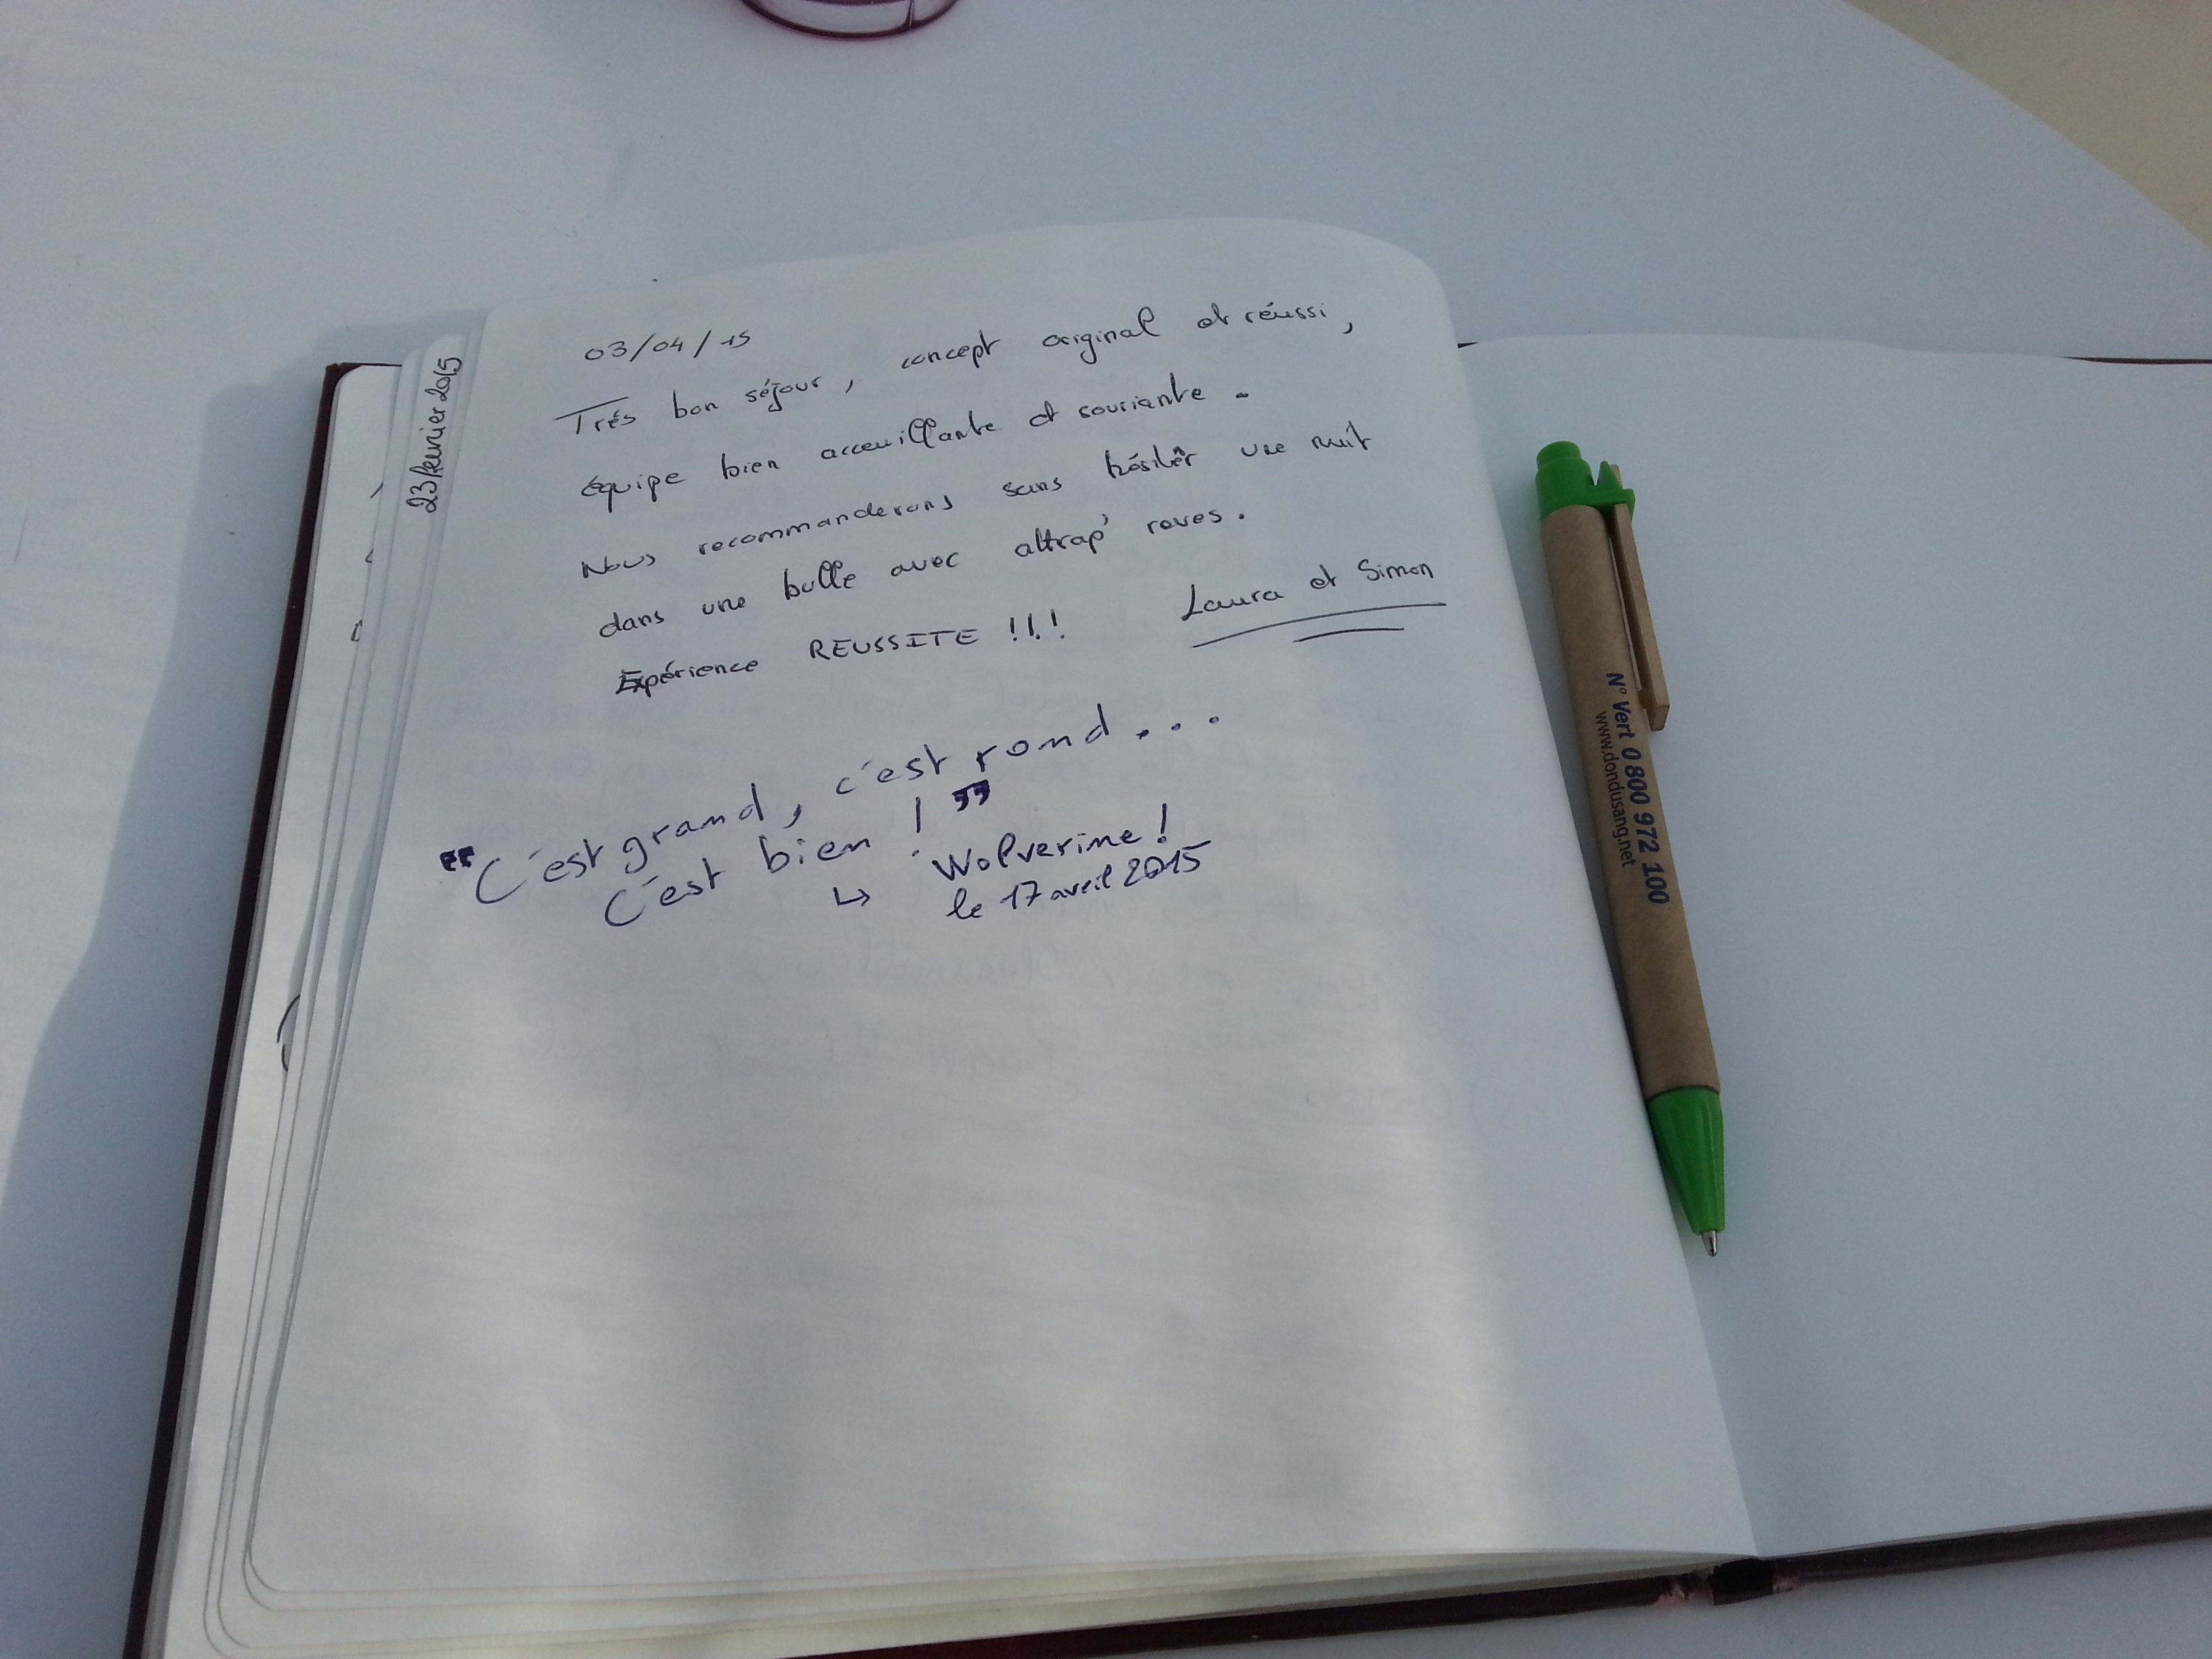 23 février 2015
03/04/15
Très bon séjour, concept original et réussi,
équipe bien acceuillante et souriante.
Nous recommanderons sans hésiter une nuit
dans une bulle avec attrap' reves.
Expérience REUSSITE !!!
Laura et Simon
"C'est grand, c'est rond...
C'est bien !"
↳ Wolverine!
le 17 avril 2015
N° Vert 0 800 972 100
www.dondusang.net